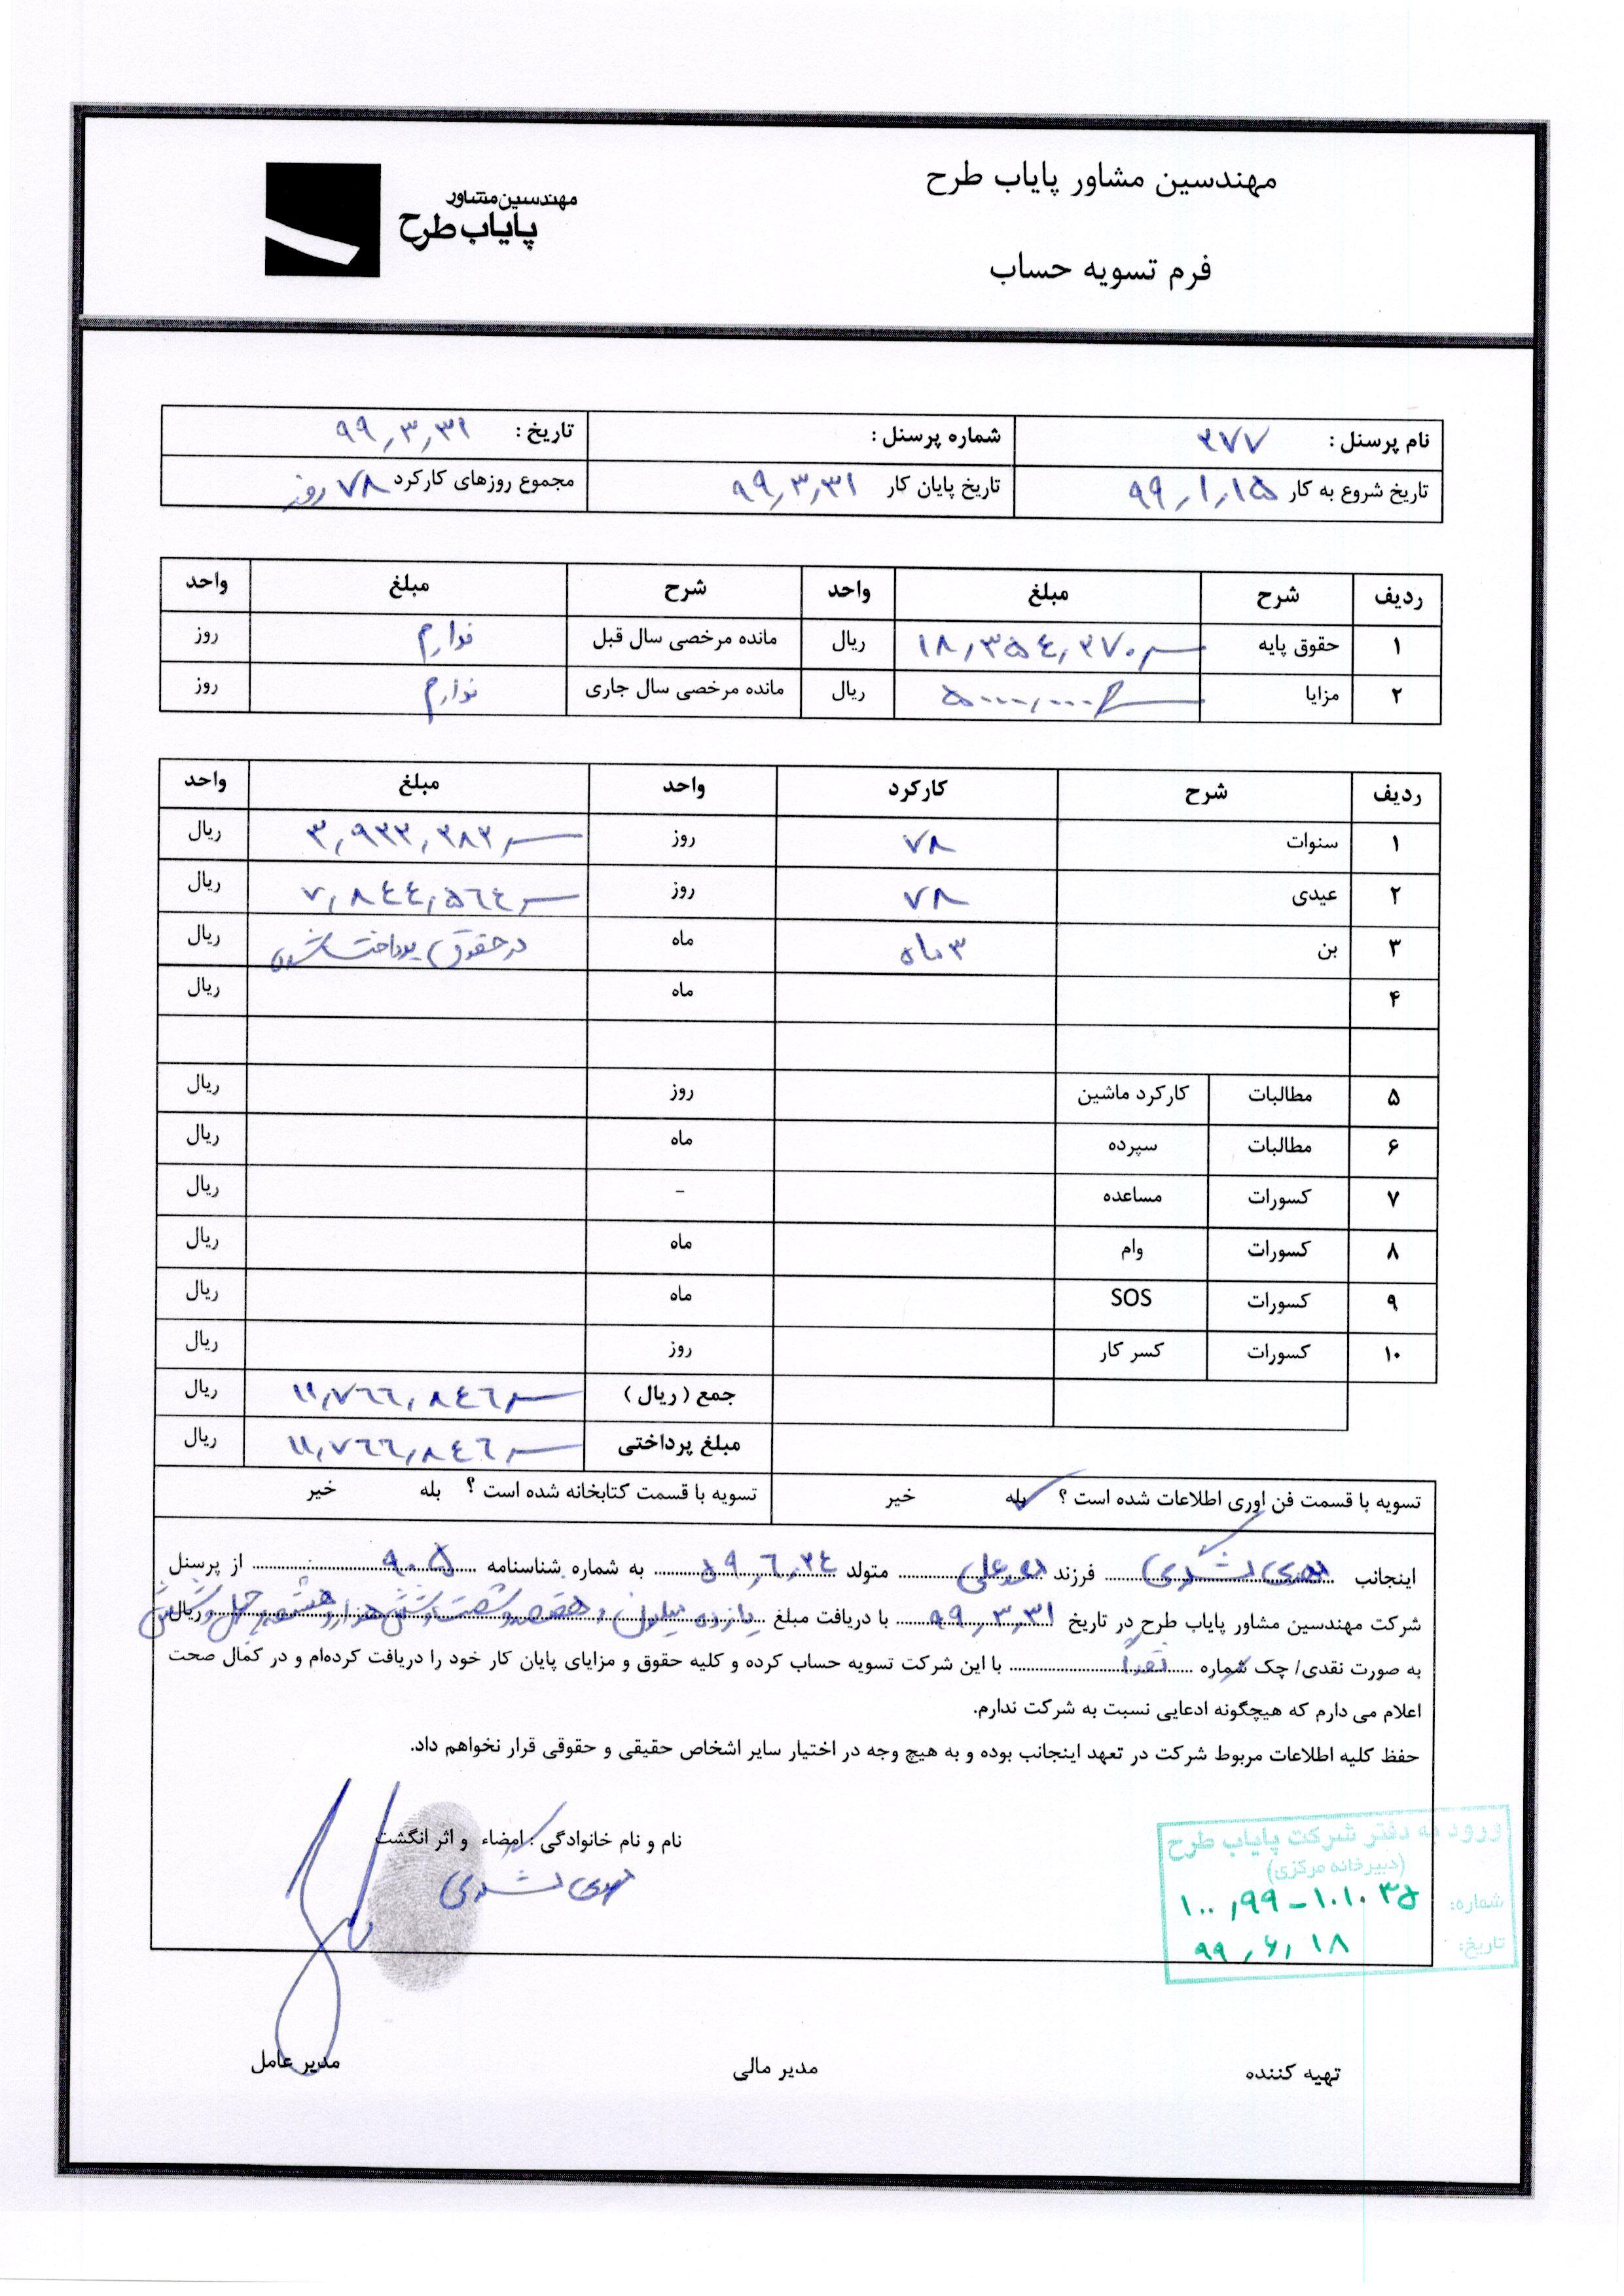 مهندسین مشاور پایاب طرح
مهندسین مشاور
پایاب طرح
فرم تسویه حساب
نام پرسنل : ۲۷۷ شماره پرسنل : تاریخ : ۹۹٫۳٫۳۱
تاریخ شروع به کار ۹۹٫۱٫۱۵ تاریخ پایان کار ۹۹٫۳٫۳۱ مجموع روزهای کارکرد ۷۸ روز
ردیف شرح مبلغ واحد شرح مبلغ واحد
۱ حقوق پایه ۱۸٫۳۵٤٫۲۷۰ ریال مانده مرخصی سال قبل ندارم روز
۲ مزایا ۵۰۰۰٫۰۰۰ ریال مانده مرخصی سال جاری ندارم روز
ردیف شرح کارکرد واحد مبلغ واحد
۱ سنوات ۷۸ روز ۳٫۹۲۲٫۲۸۲ ریال
۲ عیدی ۷۸ روز ۷٫۸٤٤٫۵٦٤ ریال
۳ بن ۳ ماه ماه در حقوق پرداخت شده ریال
۴ ماه ریال
۵ مطالبات کارکرد ماشین روز ریال
۶ مطالبات سپرده ماه ریال
۷ کسورات مساعده - ریال
۸ کسورات وام ماه ریال
۹ کسورات SOS ماه ریال
۱۰ کسورات کسر کار روز ریال
جمع ( ریال ) ۱۱٫۷٦٦٫۸٤٦ ریال
مبلغ پرداختی ۱۱٫۷٦٦٫۸٤٦ ریال
تسویه با قسمت فن اوری اطلاعات شده است ؟ بله خیر تسویه با قسمت کتابخانه شده است ؟ بله خیر
اینجانب مهدی لشگری فرزند محمدعلی متولد ۵۹٫٦٫۲٤ به شماره شناسنامه ۹۰۰۵ از پرسنل
شرکت مهندسین مشاور پایاب طرح در تاریخ ۹۹٫۳٫۳۱ با دریافت مبلغ یازده میلیون و هفتصد و شصت و شش هزار و هشتصد و چهل و شش ریال
به صورت نقدی/ چک شماره نقداً با این شرکت تسویه حساب کرده و کلیه حقوق و مزایای پایان کار خود را دریافت کرده‌ام و در کمال صحت
اعلام می دارم که هیچگونه ادعایی نسبت به شرکت ندارم.
حفظ کلیه اطلاعات مربوط شرکت در تعهد اینجانب بوده و به هیچ وجه در اختیار سایر اشخاص حقیقی و حقوقی قرار نخواهم داد.
نام و نام خانوادگی : امضاء و اثر انگشت
مهدی لشگری
ورود به دفتر شرکت پایاب طرح
(دبیرخانه مرکزی)
شماره: ۱۰۰٫۹۹-۱۰۱۰۳۵
تاریخ: ۹۹٫۶٫۱۸
تهیه کننده مدیر مالی مدیر عامل